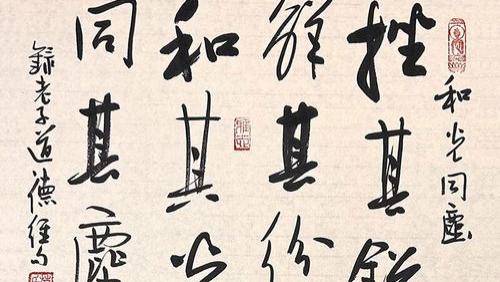 和光同塵
挫其銳
解其紛
和其光
同其塵
錄老子道德經句